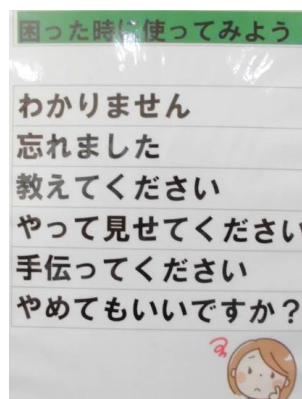 困った時に使ってみよう
わかりません
忘れました
教えてください
やって見せてください
手伝ってください
やめてもいいですか？